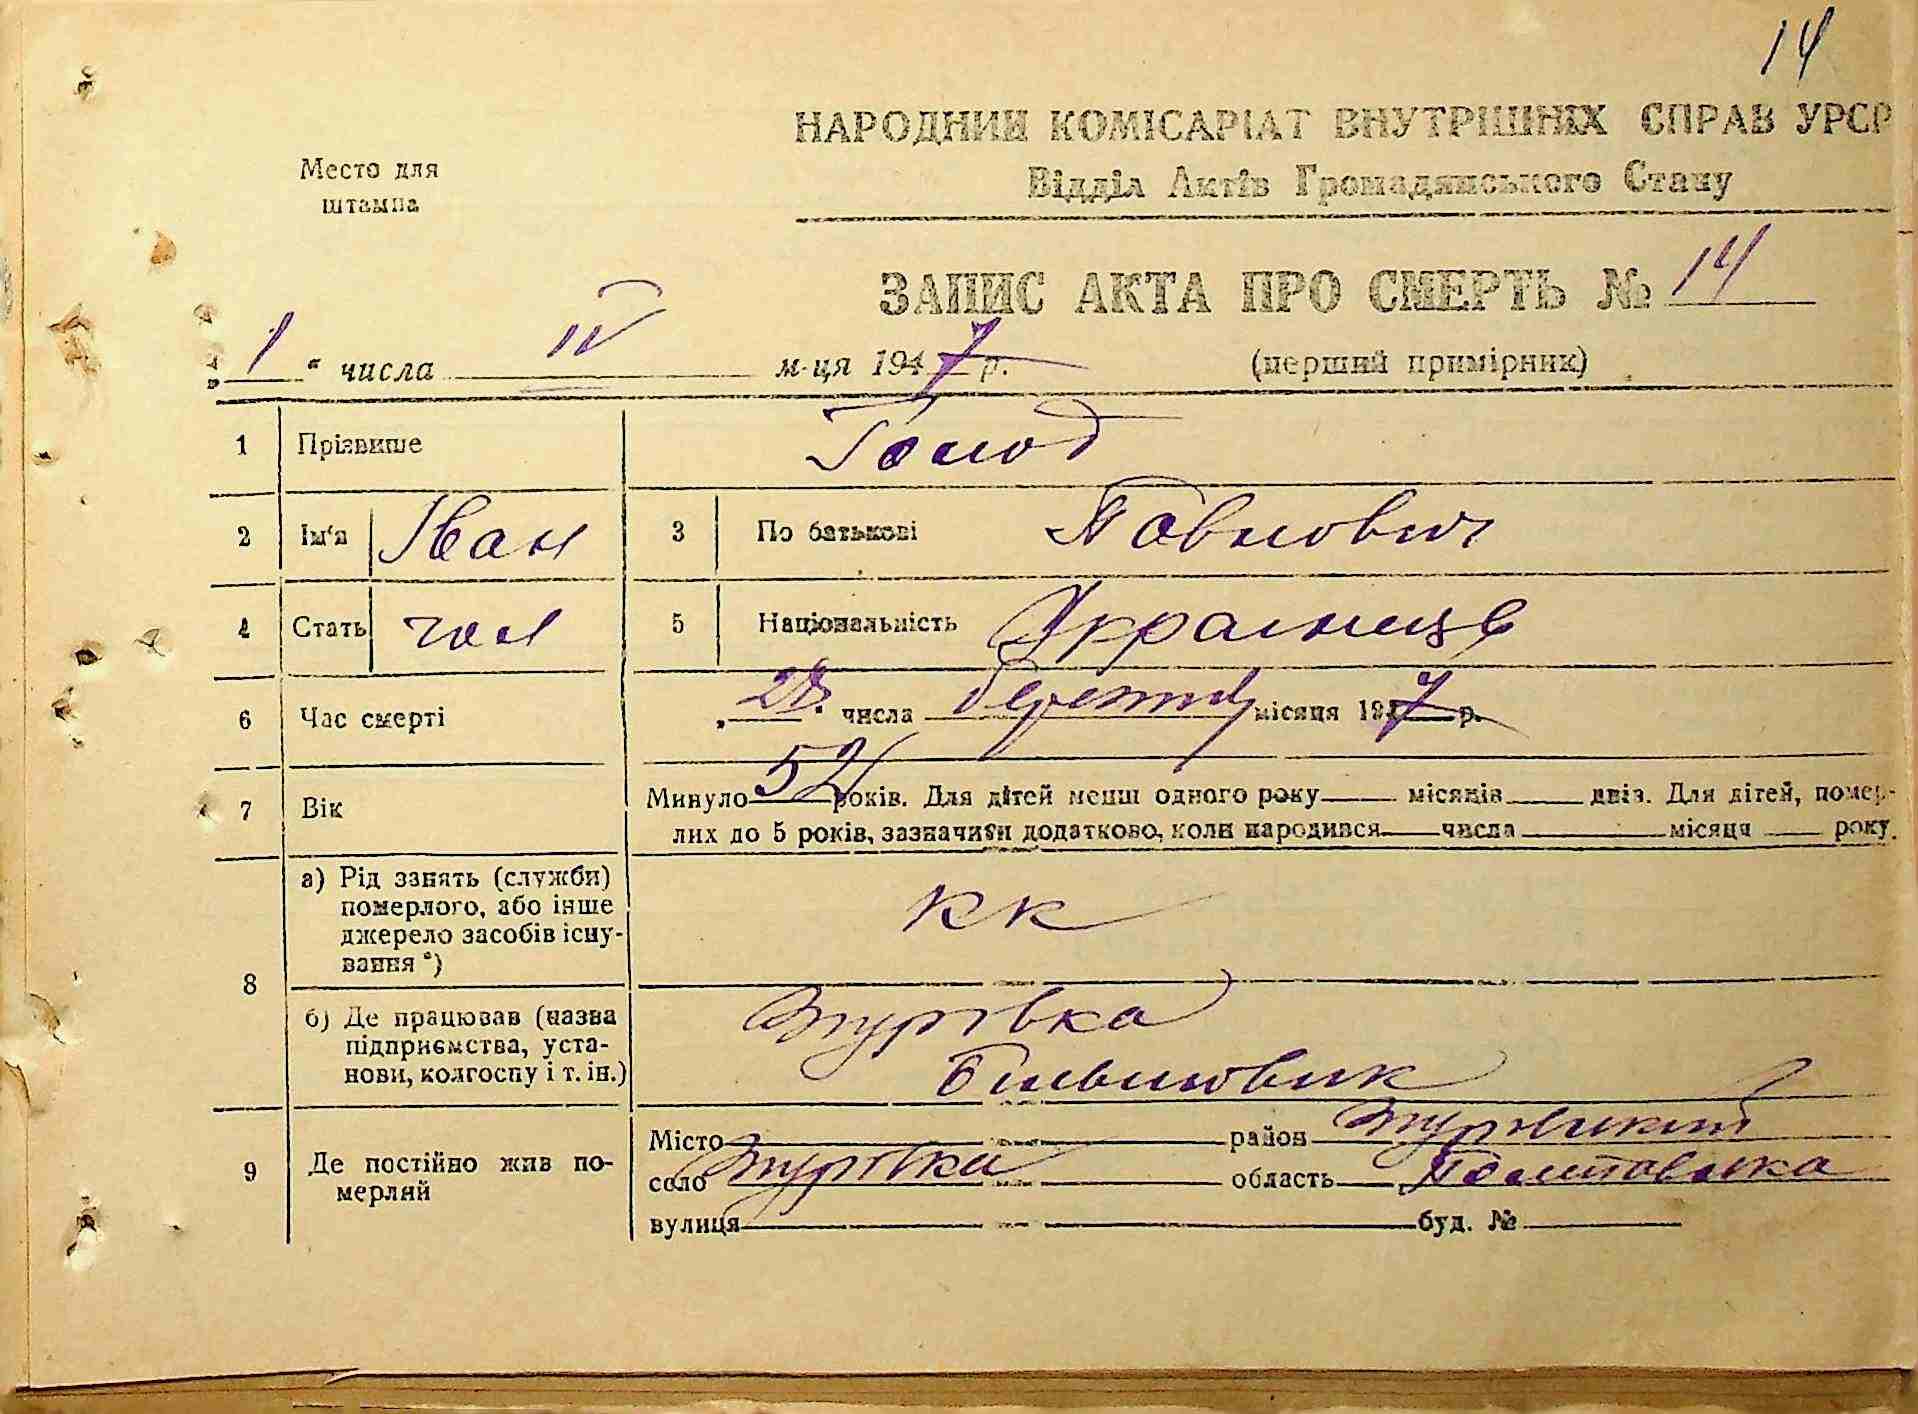 14
НАРОДНИЙ КОМІСАРІАТ ВНУТРІШНІХ СПРАВ УРСР
Место для штампа
Відділ Актів Громадянського Стану
ЗАПИС АКТА ПРО СМЕРТЬ № 14
„1“ числа IV м-ця 1947 р. (перший примірник)
1 Прізвише Голод
2 Ім'я Іван 3 По батькові Павлович
4 Стать чол 5 Національність Українець
6 Час смерті „28“ числа березня місяця 1947 р.
7 Вік Минуло 52 років. Для дітей менш одного року місяців днів. Для дітей, помер-
лих до 5 років, зазначити додатково, коли народився числа місяця року.
8 а) Рід занять (служби) померлого, або інше джерело засобів існу-вання *) КК
б) Де працював (назва підприємства, уста-нови, колгоспу і т. ін.) Згурівка
Більшовик
9 Де постійно жив по-мерлий Місто район Згурівський
село Згурівка область Полтавська
вулиця буд. №